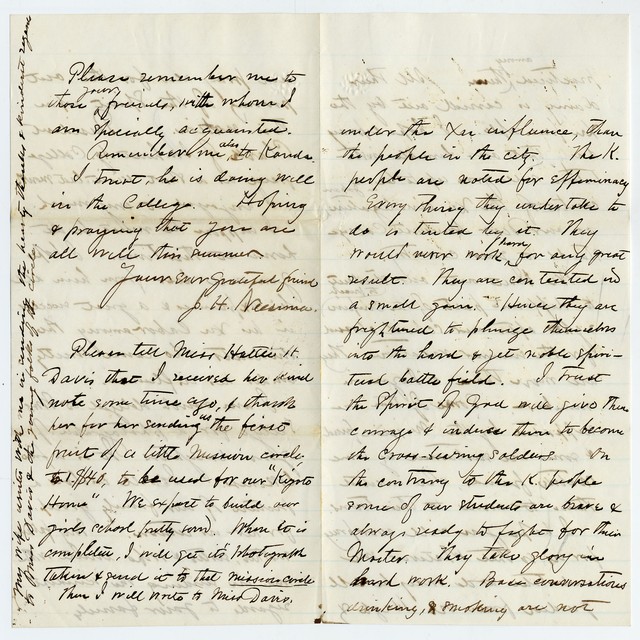 Please remember me to
those your friends, with whom I
am specially acquainted.
Remember me also to Kanda.
I trust he is doing well
in the College. Hoping
& praying that you are
all well this summer
Your ever grateful friend
J. H. Neesima.
Please tell Miss Hattie H.
Davis that I received her kind
note some time ago, & thank
her for her sending us the first
fruit of a little mission circle
to be used for our "Kioto
Home". We expect to build our
girls school pretty soon. When it is
complete, I will get its photograph
taken & send it to that mission circle
Then I will write to Miss Davis.
My wife unites with me in sending the hearty thanks & kindest regard
to Miss Davis & the young folks of the circle.
under the Xn influence, than
the people in the city. The K.
people are noted for effeminacy
Every thing they undertake to
do is tinted by it. They
would never work hard for any great
result. They are contented in
a small gain. Hence they are
frightened to plunge themselves
into the hard & yet noble spiri-
tual battle field. I trust
the Spirit of God will give them
courage & induce them to become
the cross-bearing soldiers. On
the contrary to the K. people
some of our students are brave &
always ready to fight for their
Master. They take glory in
hard work. Base conversations
drinking, & smoking are not